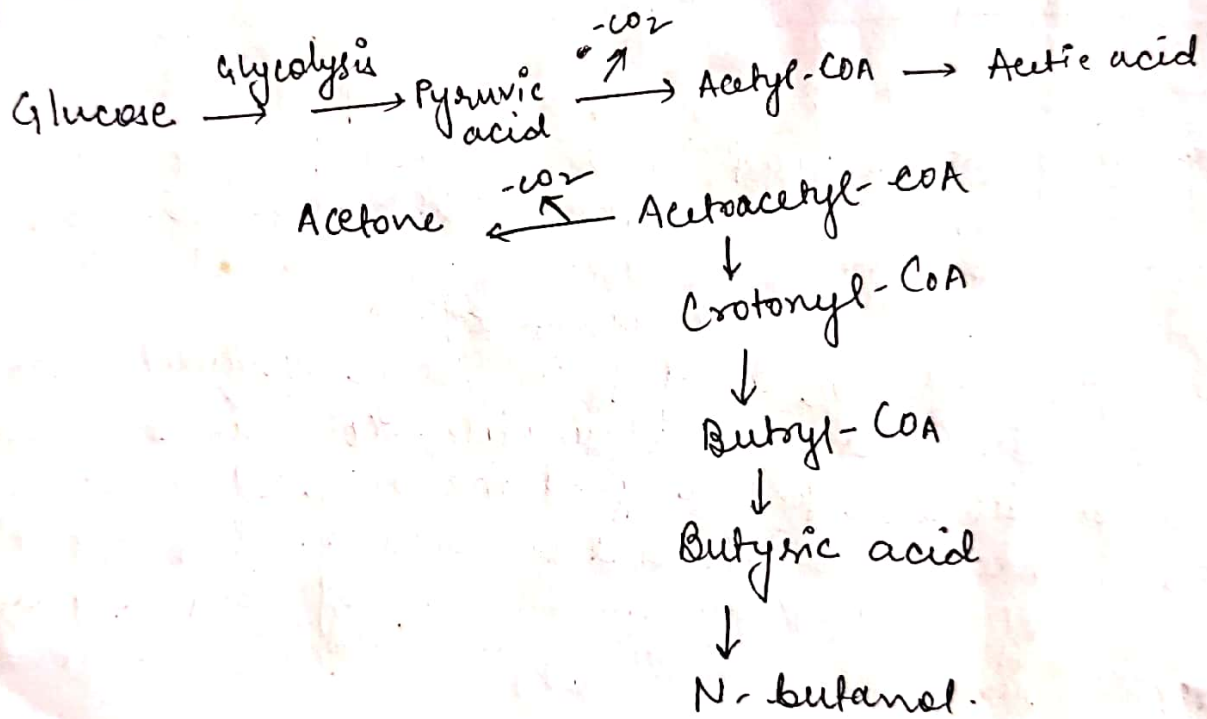 -CO2
Glycolysis
Glucose → → Pyruvic acid → Acetyl-COA → Acetic acid
-CO2
Acetone ← Acetoacetyl-COA
↓
Crotonyl-CoA
↓
Butryl-COA
↓
Butyric acid
↓
N-butanol.